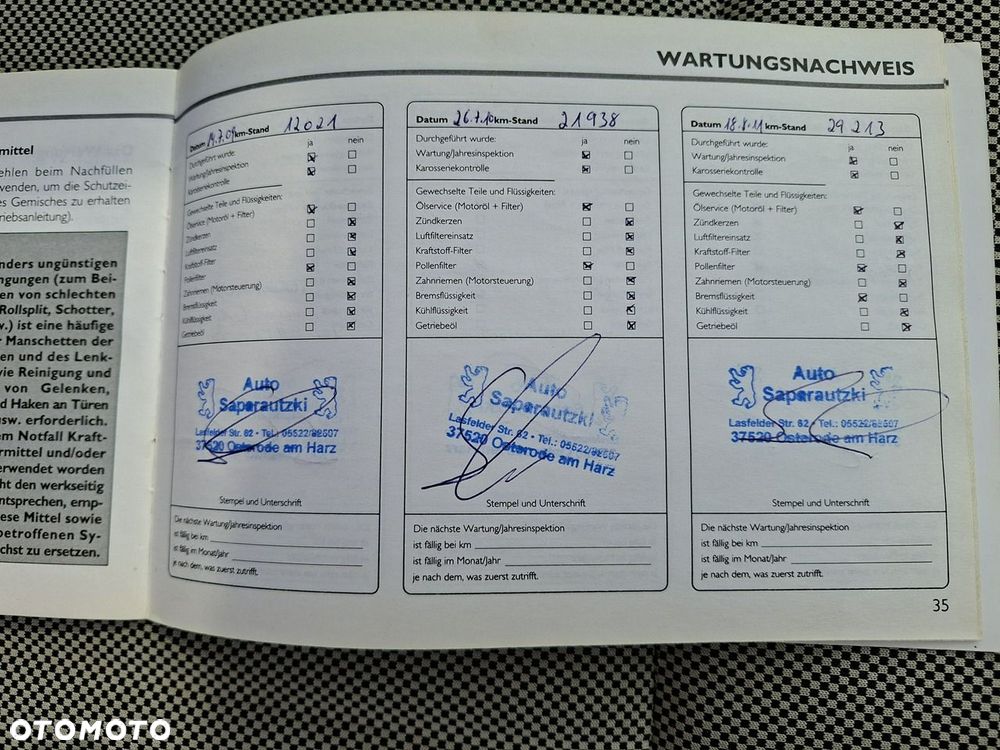 WARTUNGSNACHWEIS
mittel
ehlen beim Nachfüllen
wenden, um die Schutzei-
es Gemisches zu erhalten
riebsanleitung).
nders ungünstigen
ngungen (zum Bei-
en von schlechten
Rollsplit, Schotter,
w.) ist eine häufige
r Manschetten der
en und des Lenk-
wie Reinigung und
von Gelenken,
d Haken an Türen
usw. erforderlich.
em Notfall Kraft-
rmittel und/oder
erwendet worden
ht den werkseitig
ntsprechen, emp-
ese Mittel sowie
betroffenen Sy-
chst zu ersetzen.
Datum 14.7.09 km-Stand 12021
Durchgeführt wurde: ja nein
Wartung/Jahresinspektion
Karosseriekontrolle
Gewechselte Teile und Flüssigkeiten:
Ölservice (Motoröl + Filter)
Zündkerzen
Luftfiltereinsatz
Kraftstoff-Filter
Pollenfilter
Zahnriemen (Motorsteuerung)
Bremsflüssigkeit
Kühlflüssigkeit
Getriebeöl
Auto
Saparautzki
Lasfelder Str. 82 • Tel.: 05522/82607
37520 Osterode am Harz
Stempel und Unterschrift
Die nächste Wartung/Jahresinspektion
ist fällig bei km
ist fällig im Monat/Jahr
je nach dem, was zuerst zutrifft.
Datum 26.7.10 km-Stand 21938
Durchgeführt wurde: ja nein
Wartung/Jahresinspektion
Karosseriekontrolle
Gewechselte Teile und Flüssigkeiten:
Ölservice (Motoröl + Filter)
Zündkerzen
Luftfiltereinsatz
Kraftstoff-Filter
Pollenfilter
Zahnriemen (Motorsteuerung)
Bremsflüssigkeit
Kühlflüssigkeit
Getriebeöl
Auto
Saparautzki
Lasfelder Str. 82 • Tel.: 05522/82607
37520 Osterode am Harz
Stempel und Unterschrift
Die nächste Wartung/Jahresinspektion
ist fällig bei km
ist fällig im Monat/Jahr
je nach dem, was zuerst zutrifft.
Datum 18.8.11 km-Stand 29213
Durchgeführt wurde: ja nein
Wartung/Jahresinspektion
Karosseriekontrolle
Gewechselte Teile und Flüssigkeiten:
Ölservice (Motoröl + Filter)
Zündkerzen
Luftfiltereinsatz
Kraftstoff-Filter
Pollenfilter
Zahnriemen (Motorsteuerung)
Bremsflüssigkeit
Kühlflüssigkeit
Getriebeöl
Auto
Saparautzki
Lasfelder Str. 82 • Tel.: 05522/82607
37520 Osterode am Harz
Stempel und Unterschrift
Die nächste Wartung/Jahresinspektion
ist fällig bei km
ist fällig im Monat/Jahr
je nach dem, was zuerst zutrifft.
35
OTOMOTO